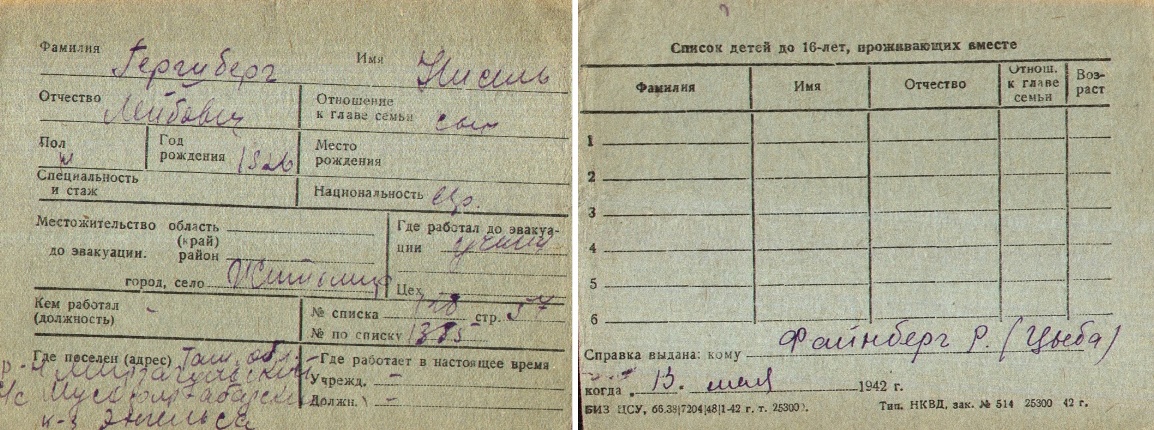 Фамилия Гергиберг Имя Нисель
Отчество Лейбович Отношение к главе семьи сын
Пол м Год рождения 1926 Место рождения
Специальность и стаж Национальность евр.
Местожительство до эвакуации. область (край)
район
город, село Житомир
Где работал до эвакуации учени
Цех
Кем работал (должность) -
№ списка 128 стр. 57
№ по списку 1385
Где поселен (адрес) Таш. обл.
р-н
с/с
к-з Энгельса
Где работает в настоящее время
Учрежд. –
Должн. –
Список детей до 16-лет, проживающих вместе
Фамилия Имя Отчество Отнош. к главе семьи Возраст
1
2
3
4
5
6
Справка выдана: кому Файнберг Р. (Цыба)
когда 13. июля 1942 г.
БИЗ ЦСУ, 66.38|7204|48|1-42 г. т. 25300. Тип. НКВД, зак. № 514 25300 42 г.